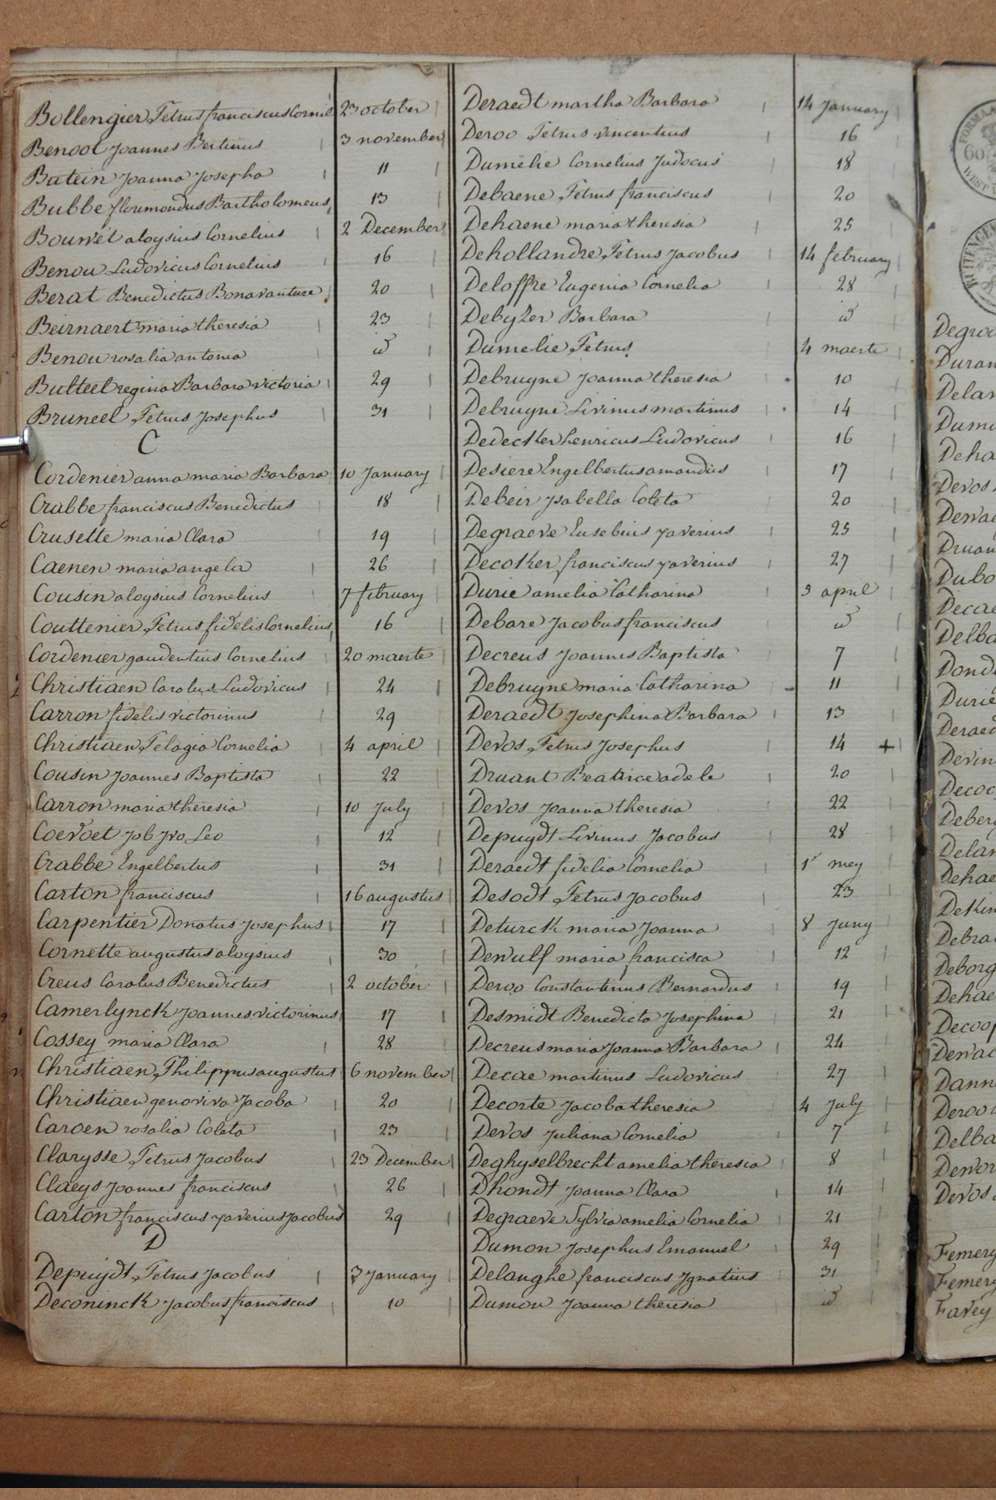 Bollengier Petrus franciscus Cornil 23 october
Benoot Joannes Bertinus 3 november
Batein Joanna Josepha 11
Bubbe florimondus Bartholomeus 13
Bouwet aloysius Cornelius 2 December
Benou Ludovicus Cornelius 16
Berat Benedictus Bonaventure 20
Beirnaert maria theresia 23
Benou rosalia antonia id
Butteel regina Barbara victoria 29
Bruneel Petrus Josephus 31
C
Cordenier anna maria Barbara 10 January
Crabbe franciscus Benedictus 18
Crusette maria Clara 19
Caenen maria angela 26
Cousin aloysius Cornelius 7 february
Couttenier Petrus fidelis Cornelius 16
Cordenier gaudentius Cornelius 20 maerte
Christiaen Carolus Ludovicus 24
Carron fidelis victorinus 29
Christiaen Pelagia Cornelia 4 april
Cousin Joannes Baptista 22
Carron maria theresia 10 July
Coevoet Job Jvo Leo 12
Crabbe Engelbertus 31
Carton franciscus 16 augustus
Carpentier Donatus Josephus 17
Cornette augustus aloysius 30
Creus Carolus Benedictus 2 october
Camerlynck Joannes victorinus 17
Cossey maria Clara 28
Christiaen Philippus augustus 6 november
Christiaen genoviva Jacoba 20
Caroen rosalia Coleta 23
Clarysse Petrus Jacobus 23 December
Claeys Joannes franciscus 26
Carton franciscus xaverius Jacobus 29
D
Depuydt Petrus Jacobus 3 January
Deconinck Jacobus franciscus 10
Deraedt martha Barbara 14 January
Deroo Petrus vincentius 16
Dumelie Cornelius Judocus 18
Debaene Petrus franciscus 20
Dehaene maria theresia 25
Dehollandre Petrus Jacobus 14 february
Deloffre Eugenia Cornelia 28
Debyzer Barbara id
Dumelie Petrus 4 maerte
Debruyne Joanna theresia 10
Debruyne Livinus martinus 14
Dedecker henricus Ludovicus 16
Desiere Engelbertus amandus 17
Debeir Ysabella Coleta 20
Degraeve Eusebius xaverius 25
Decoker franciscus xaverius 27
Durie amelia Catharina 3 april
Debare Jacobus franciscus id
Decreus Joannes Baptista 7
Debruyne maria Catharina 11
Deraedt Josephina Barbara 13
Devos Petrus Josephus 14 +
Druant Beatrice adele 20
Devos Joanna theresia 22
Depuydt Livinus Jacobus 28
Deraedt fidelia Cornelia 1 mey
Desodt Petrus Jacobus 23
Deturck maria Joanna 8 Juny
Dewulf maria francisca 12
Deroo Constantinus Bernardus 19
Desmidt Benedicta Josephina 21
Decreus maria Joanna Barbara 24
Decae martinus Ludovicus 27
Decorte Jacoba theresia 4 July
Devos Juliana Cornelia 7
Deghyselbrecht amelia theresia 8
Dhondt Joanna Clara 14
Degraeve Sylvia amelia Cornelia 21
Dumon Josephus Emanuel 29
Delanghe franciscus Ygnatius 31
Dumon Joanna theresia id